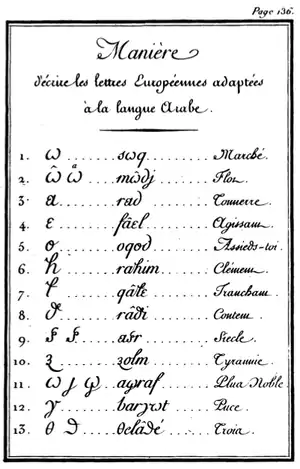 Page 136.
Manière
d'écrire les lettres Européennes adaptées
à la langue Arabe.
1. ω ....... sωq ....... Marché.
2. ω̂ ω̊ .... mω̂dj ....... Flot.
3. a ....... rad ....... Tonnerre.
4. ε ....... fâεl ....... Agissant.
5. o ....... oqod ....... Assieds-toi.
6. ħ ....... raħim ....... Clément.
7. ....... Tranchant.
8. ....... Content.
9. ....... Siecle.
10. ʒ ....... ʒolm ....... Tyrannie.
11. ....... Plus Noble.
12. γ ....... Puce.
13. θ ....... Trois.